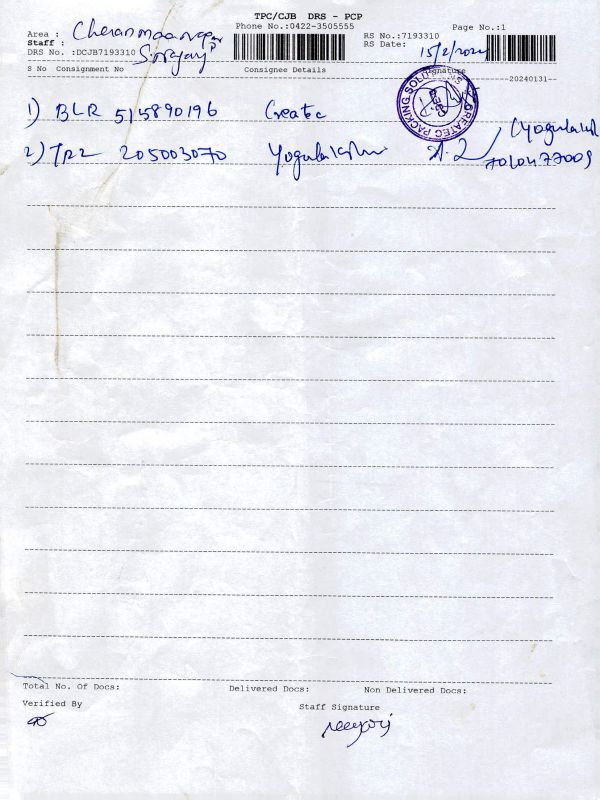 TPC/CJB DRS - PCP
Phone No.:0422-3505555
Page No.:1
Area : Cheranmaanagar
Staff :
RS No.:7193310
RS Date: 15/2/2024
DRS No. :DCJB7193310
S No Consignment No Consignee Details Signature
--20240131--
1) BLR 515890196 Createc
CREATEC PACKING SOLUTIONS
2) 205003070 Yogulakshmi
7010477009
Total No. Of Docs: Delivered Docs: Non Delivered Docs:
Verified By
Staff Signature